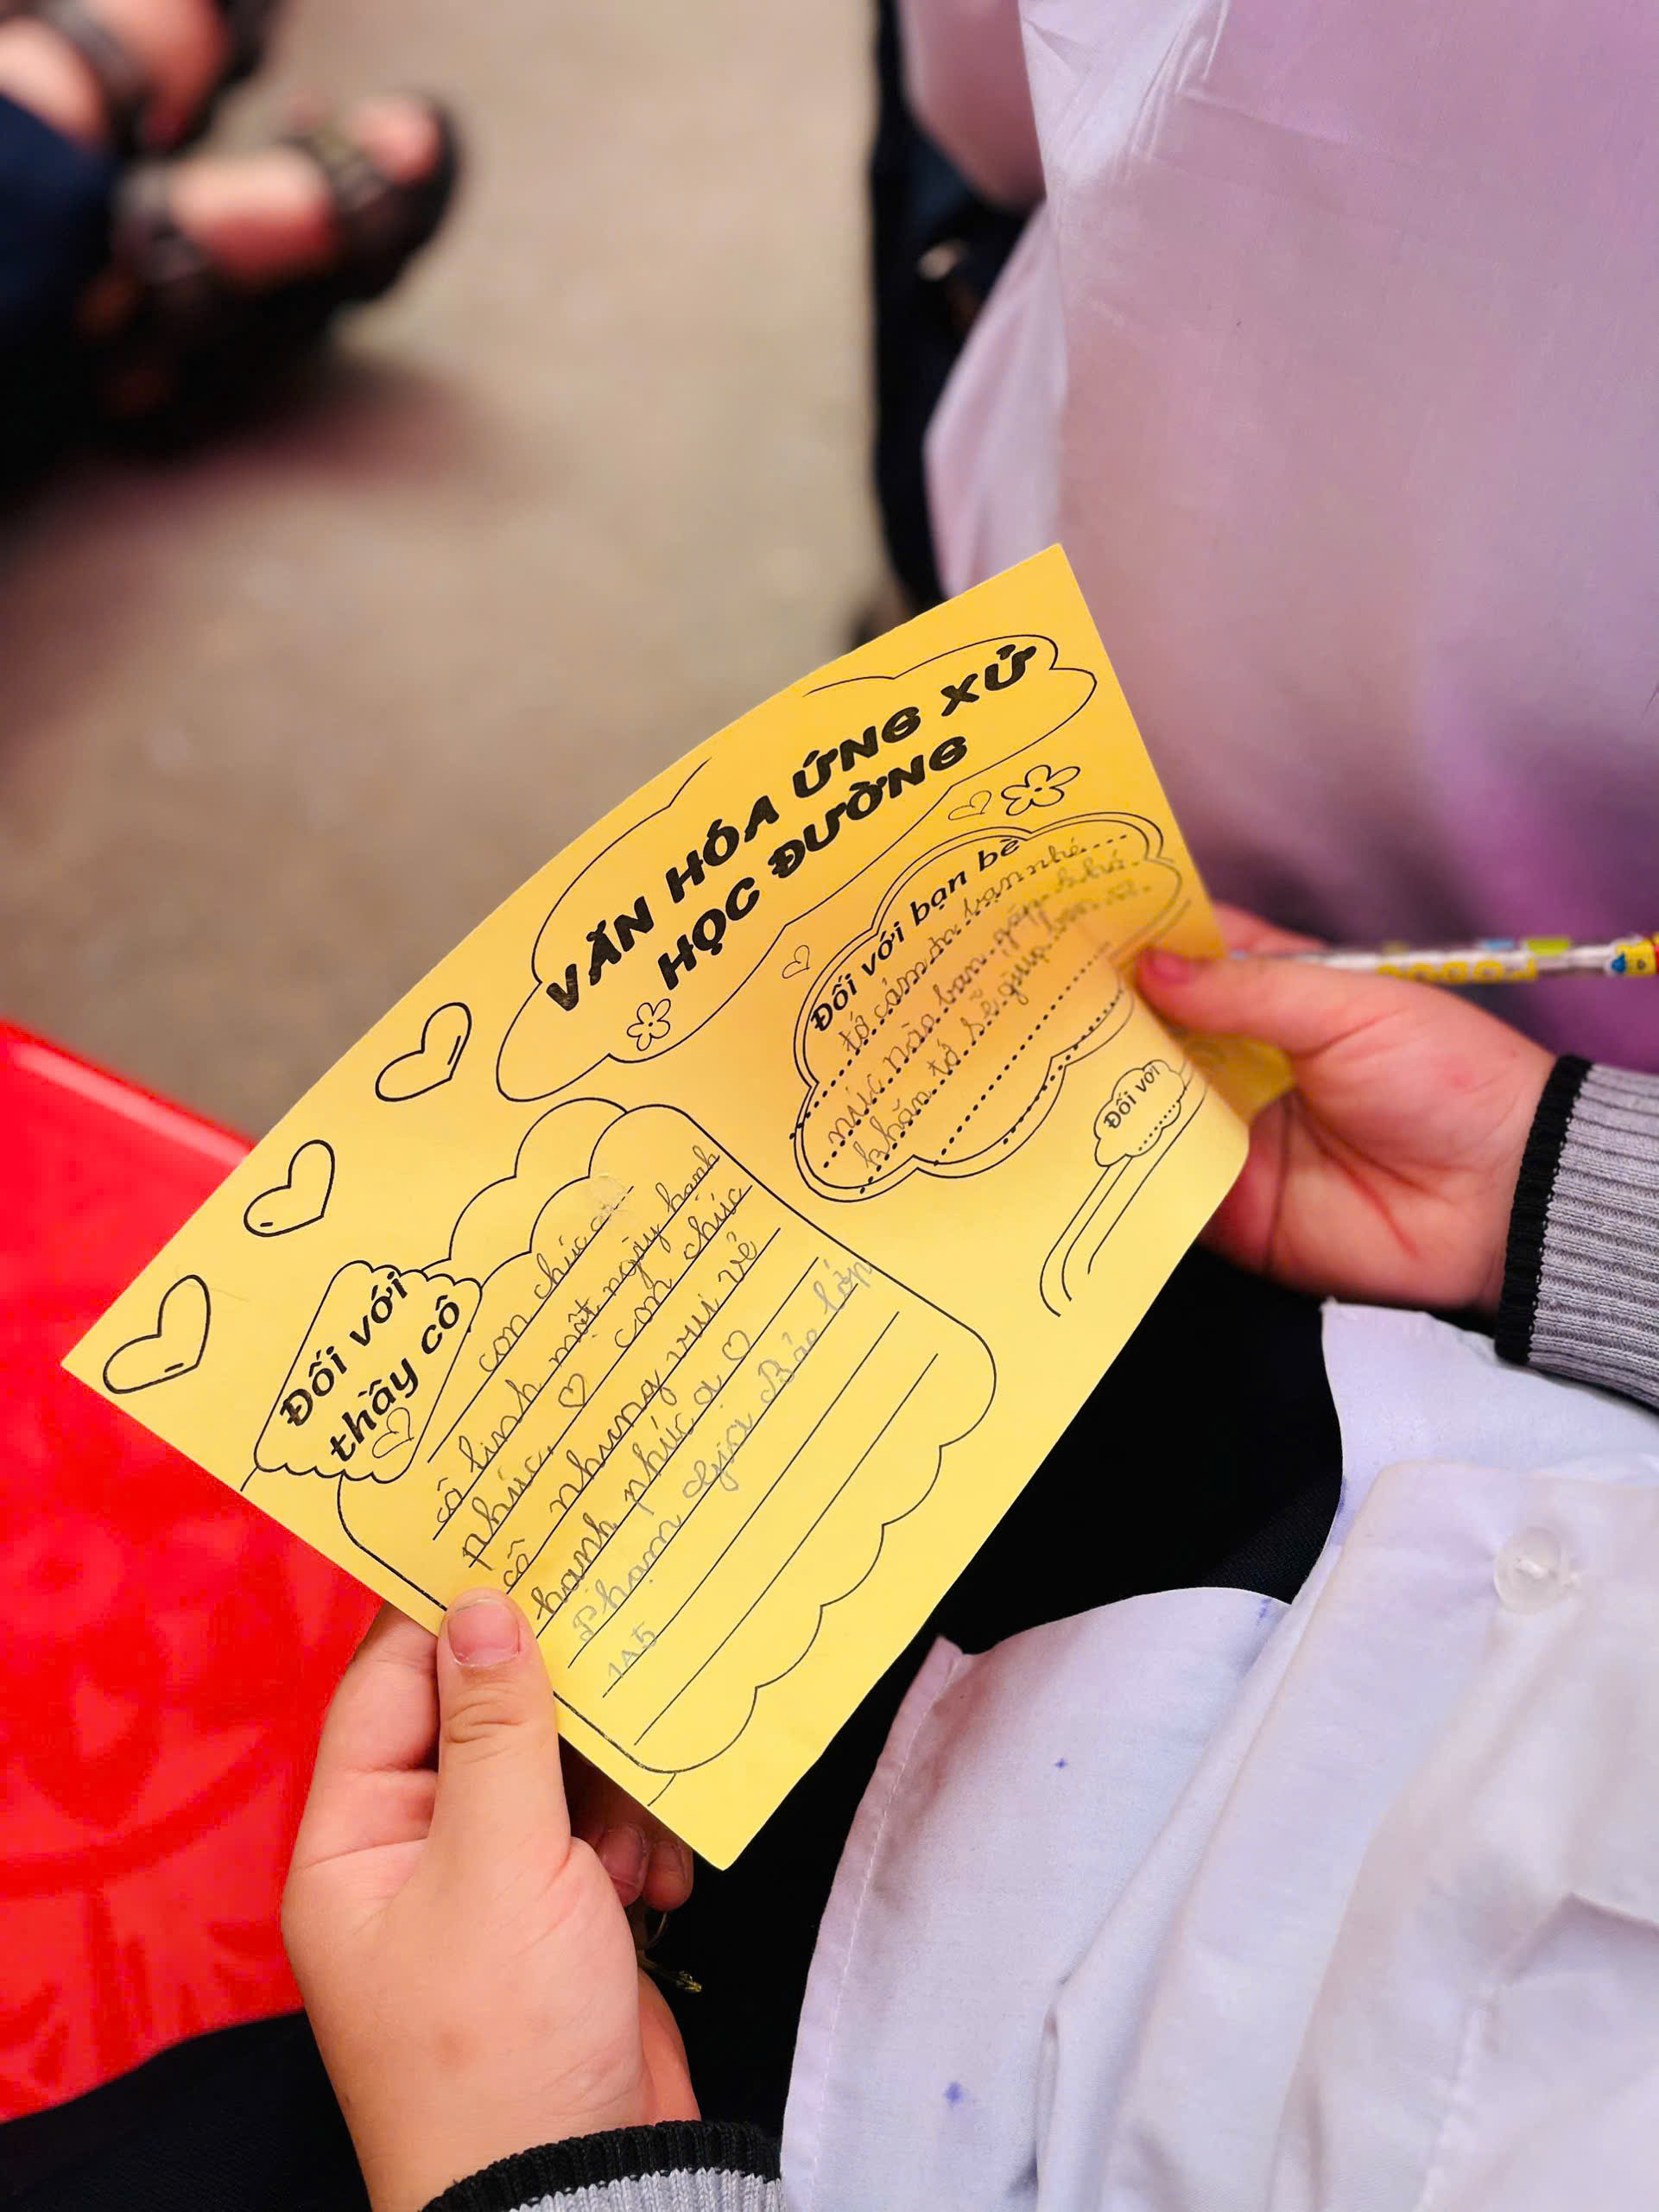 VĂN HÓA ỨNG XỬ
HỌC ĐƯỜNG
Đối với bạn bè
tớ cảm ơn bạn nhé
núc nào bạn gặp khó
khăn tớ sẽ giúp
Đối với
thầy cô
con chúc
cô linh một ngày hanh
phúc ♡ con chúc
cô nhung vui vẻ
hanh phúc ạ ♡
Phạm Gia Bảo lớp
1A5
Đối với